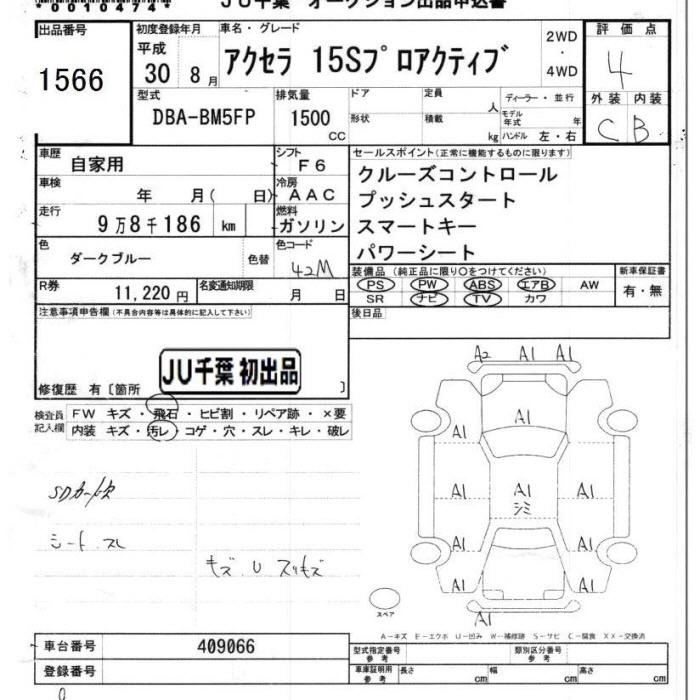 *00104774*
JU千葉 オークション出品申込書
出品番号
1566
初度登録年月
平成 30 8月
車名・グレード
アクセラ 15Sプロアクティブ
2WD
・
4WD
評価点
4
外装 内装
C B
型式
DBA-BM5FP
排気量
1500
CC
ドア
形状
定員
人
積載
kg
ディーラー・並行
モデル年式 年
ハンドル 左・右
車歴
自家用
シフト
F6
車検
年 月( 日)
冷房
AAC
走行
9万8千186 km
燃料
ガソリン
色
ダークブルー
色替
色コード
42M
R券
11,220円
名変通知期限
月 日
セールスポイント(正常に機能するものに限ります)
クルーズコントロール
プッシュスタート
スマートキー
パワーシート
装備品(純正品に限り○をつけてください)
PS PW ABS エアB AW
SR ナビ TV カワ
新車保証書
有・無
後日品
注意事項申告欄(不具合内容等は具体的に記入して下さい)
JU千葉 初出品
修復歴 有〔箇所 〕
検査員記入欄
FW キズ・飛石・ヒビ割・リペア跡・×要
内装 キズ・汚レ・コゲ・穴・スレ・キレ・破レ
SDカード欠
シート スレ
キズ U スリキズ
A2 A1 A1
A1
A1 A1
A1 A1 A1
シミ
A1 A1 A1
A1 A1
A1
スペア
A-キズ E-エクボ U-凹み W-補修跡 S-サビ C-腐食 XX-交換済
車台番号
409066
登録番号
型式指定番号
参考
類別区分番号
参考
車庫証明用
参考
長さ cm
幅 cm
高さ cm